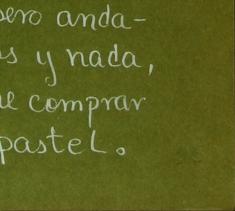 sero anda-
s y nada,
ue comprar
pastel.